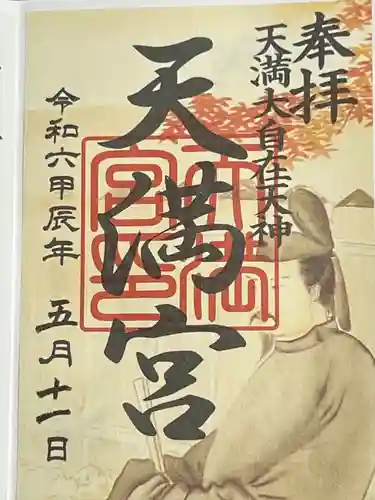 奉拝
天満大自在天神
天満宮
天満宮印
令和六甲辰年 五月十一日